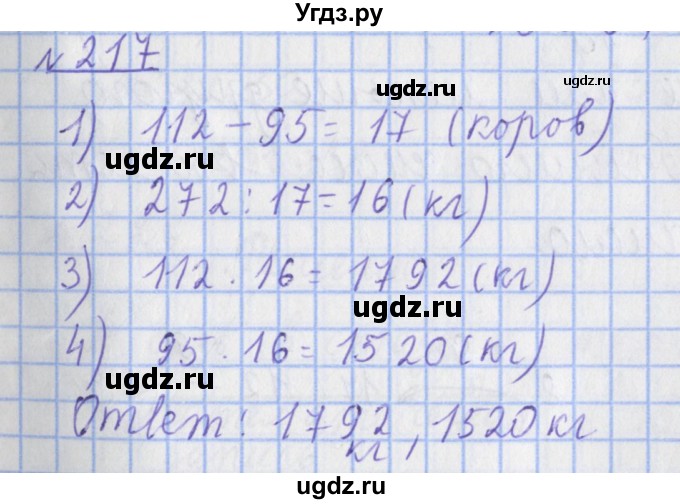 Угдз.ру
№ 217
1) 112 - 95 = 17 (коров)
2) 272 : 17 = 16 (кг)
3) 112 · 16 = 1792 (кг)
4) 95 · 16 = 1520 (кг)
Ответ: 1792 кг, 1520 кг
ugdz.ru
ugdz.ru
ugdz.ru
ugdz.ru
ugdz.ru
ugdz.ru
ugdz.ru
ugdz.ru
ugdz.ru